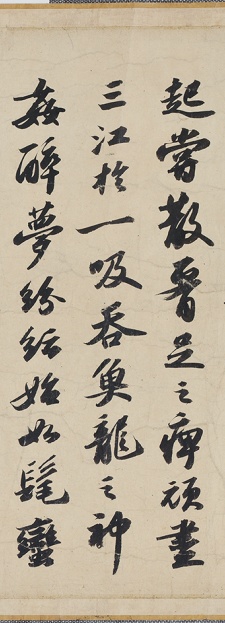 起嘗散腰足之痺頑盡
三江於一吸吞魚龍之神
姦醉夢紛紜始如髦蠻